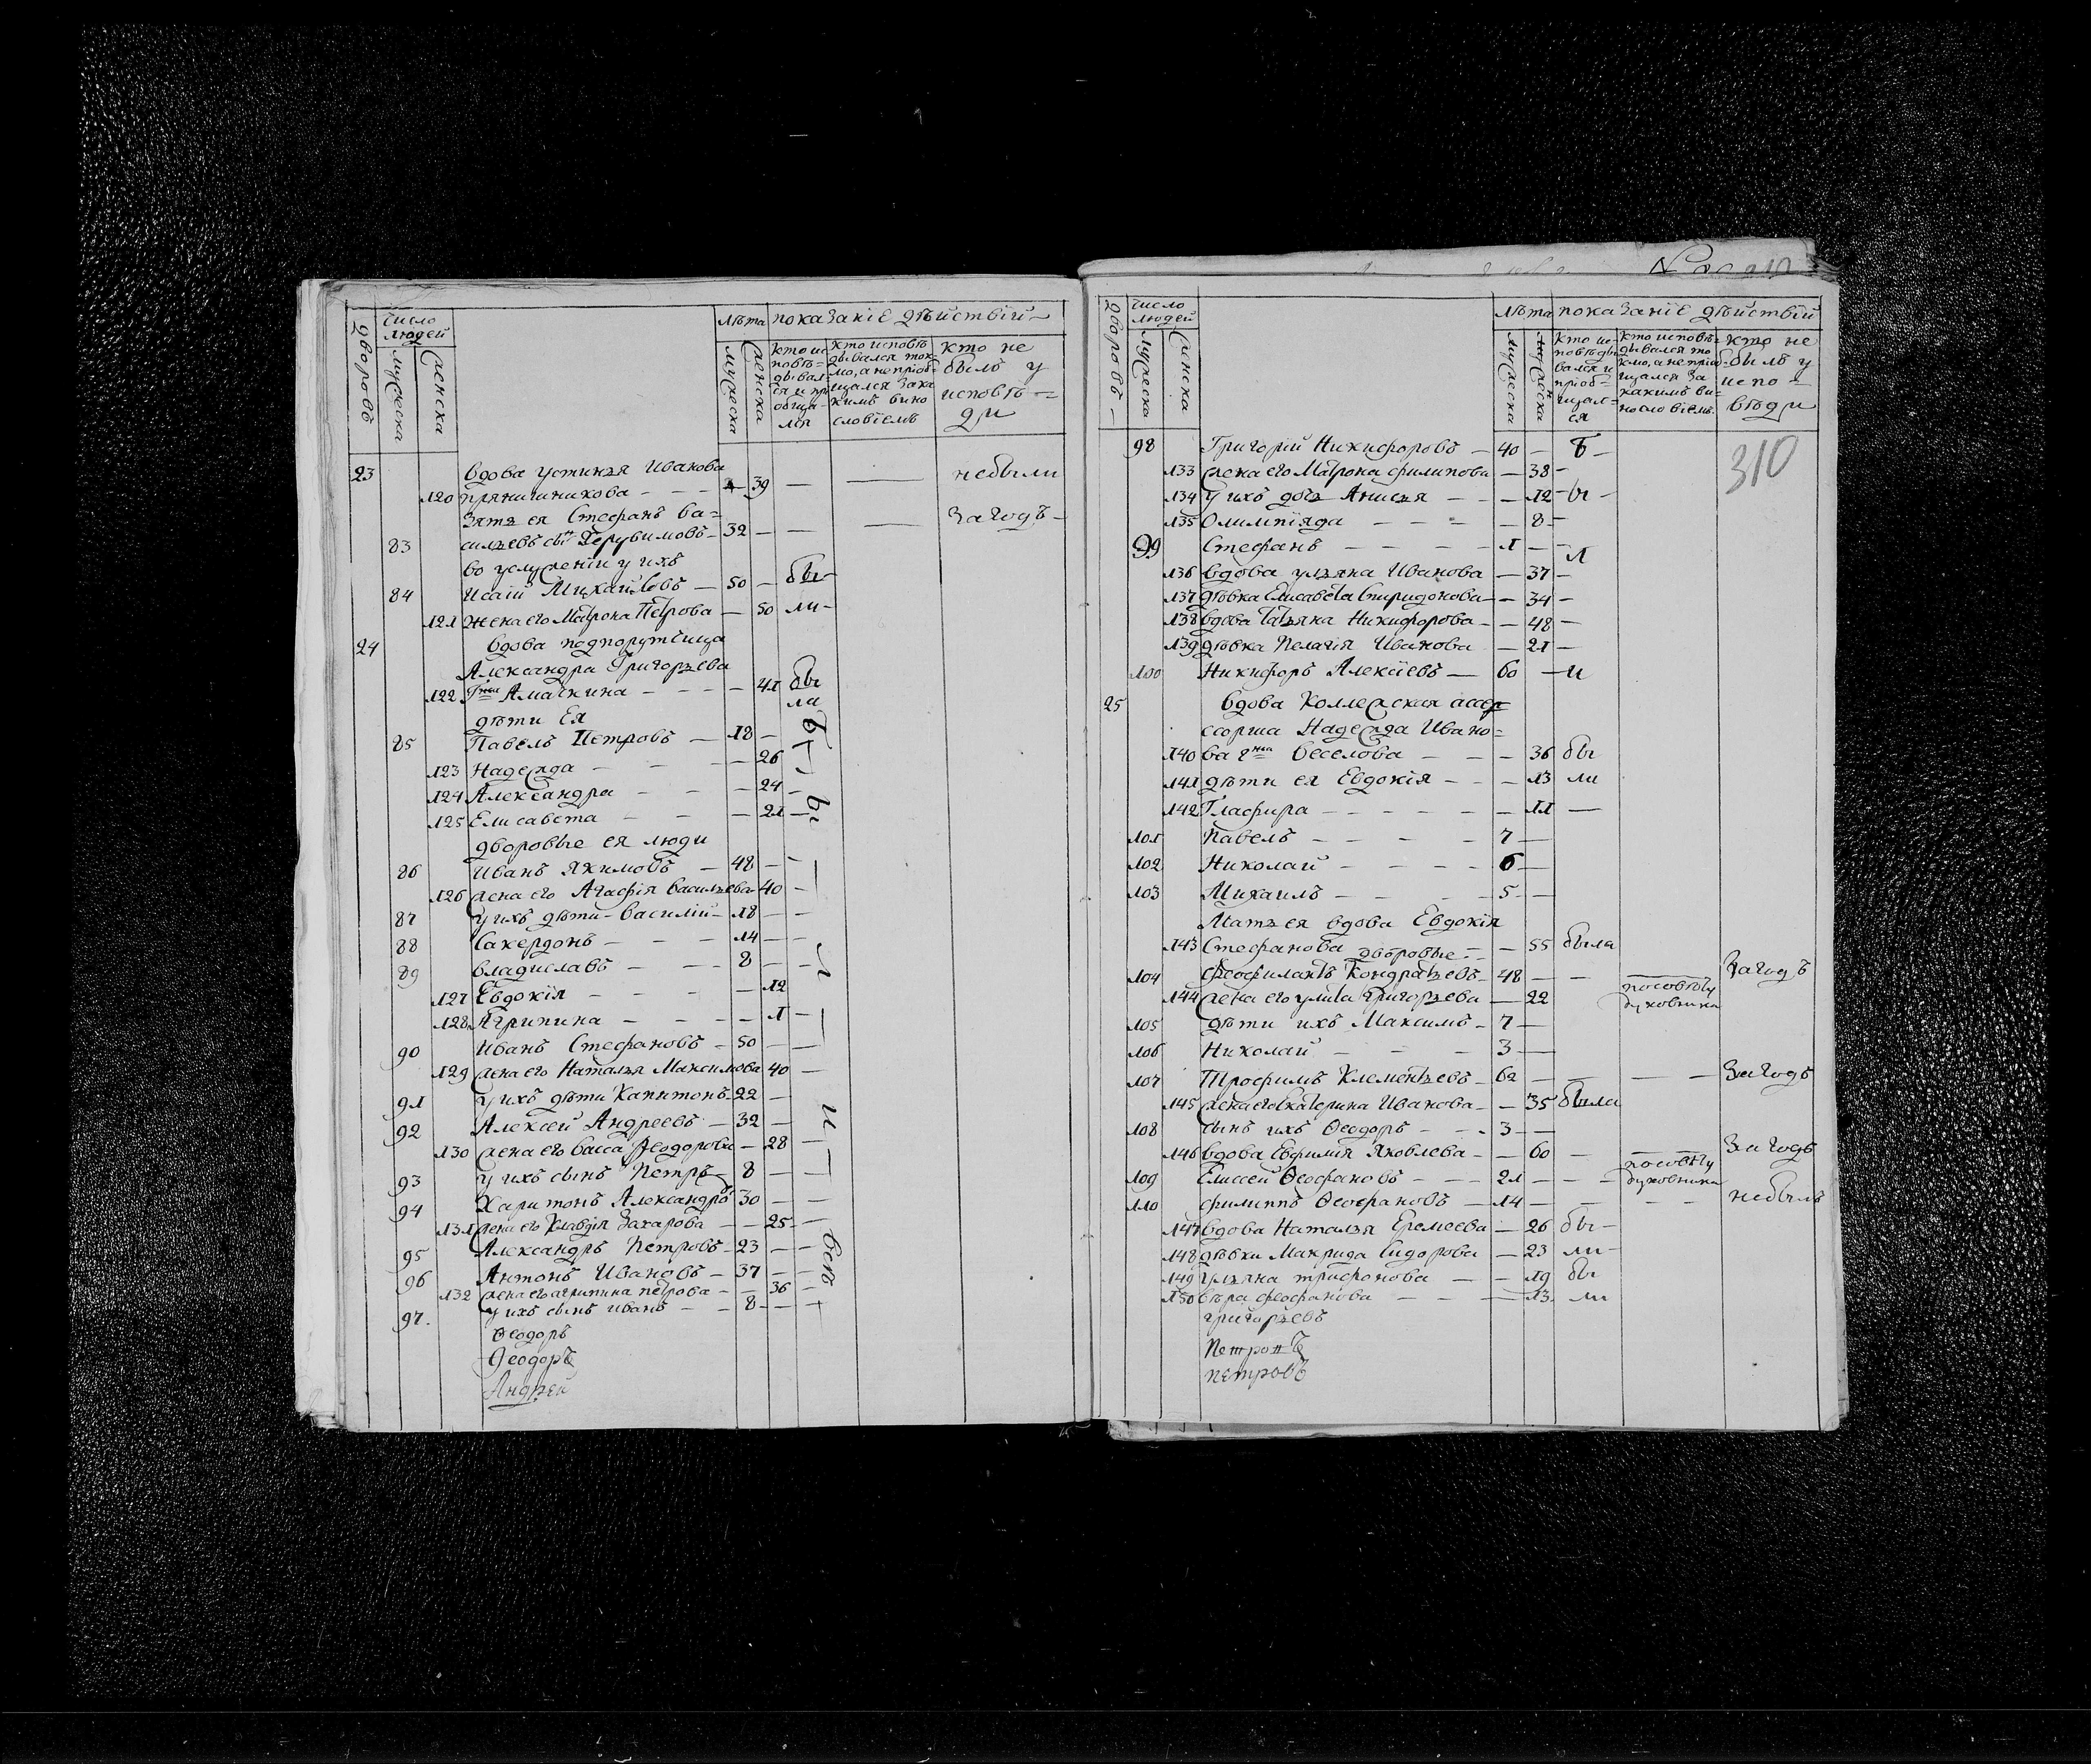 дворовъ
число людей
мужеска
женска
лѣта
показаніе дѣйствій
мужеска
женска
кто исповѣдывался и пріобщался
кто исповѣдывался токмо, а не пріобщался за какимъ винословіемъ
кто не былъ у исповѣди
23 вдова устинья Иванова
120 прянишникова — 39 — — небыли
зять ея Стефанъ ва=
83 сильевъ сынъ Херувимовъ — 32 — — — загодъ
во услуженіи у ихъ
84 Исаій Михайловъ — 50 — бы
121 жена его Матрона Петрова — 50 ли
24 вдова подпорутчица
Александра Григорьева
122 Гжа Амачкина — — 41 бы
ла
дѣти Ея
85 Павелъ Петровъ — 18 —
123 Надежда — — 26
124 Александра — — 24 —
125 Елисавета — — 21 —
дворовые ея люди
86 Иванъ Якимовъ — 48 —
126 жена его Агафія васильева 40 —
87 у ихъ дѣти василій — 18 —
88 Сакердонъ — — 14 —
89 владиславъ — — 8 —
127 Евдокія — — 12
128 Агрипина — — 1 —
90 Иванъ Стефановъ — 50 —
129 жена его Наталья Максимова 40 —
91 у ихъ дѣти Капитонъ 22 —
92 Алексей Андреевъ — 32 —
130 жена его васса Ѳеодорова — 28 —
93 у ихъ сынъ Петръ — 8 —
94 Харитонъ Александровъ 30 —
131 жена его Клавдія Захарова — 25 —
95 Александръ Петровъ — 23 —
96 Антонъ Ивановъ — 37 —
132 жена его агрипина петрова — 36 —
97. у ихъ сынъ иванъ — 8 —
бы ли всѣ
Ѳеодоръ
Ѳеодоръ
Андрей
дворовъ
число людей
мужеска
женска
лѣта
показаніе дѣйствій
мужеска
кто исповѣдывался и пріобщался
кто исповѣдывался токмо, а не пріобщался за какимъ винословіемъ
кто не былъ у исповѣди
310
98 Григорій Никифоровъ — 40 — Б
133 жена его Матрона филипова — 38 —
134 у ихъ дочь Анисья — — 12 — ы
135 Олимпіяда — — 8 —
99 Стефанъ — — 1 — л
136 вдова ульяна Иванова — 37 —
137 дѣвка Елисавета Спиридонова — 34 —
138 вдова татьяна Никифорова — 48 —
139 дѣвка Пелагія Иванова — 21 —
100 Никифоръ Алексіевъ — 60 — и
25 вдова Коллежская асес
сорша Надежда Ивано=
140 ва гжа Веселова — — 36 бы
141 дѣти ея Евдокія — — 13 ли
142 Гласфира — — 11 —
101 Павелъ — — 7 —
102 Николай — — 6 —
103 Михаилъ — — 5 —
Мать ея вдова Евдокія
143 Стефанова — 55 была
дворовые
104 Феофилактъ Кондратьевъ — 48 — — загодъ
144 жена его улита Григорьева — 22 посовѣту духовника
105 дѣти ихъ Максимъ — 7 —
106 Николай — — 3 —
107 Трофимъ Клементьевъ — 62 — — загодъ
145 жена его Екатерина Иванова — 35 была
108 сынъ ихъ Ѳеодоръ — 3 —
146 вдова Евфимія Яковлева — 60 — — загодъ
109 Елисей Ѳеофановъ — 21 — — посовѣту духовника
110 филиппъ Ѳеофановъ — 14 — — небылъ
147 вдова Наталья Еремеева — 26 бы —
148 дѣвки Макрида Сидорова — 23 ли —
149 ульяна трифонова — 19 бы
150 вѣра феофанова — — 13. ли
григорьевъ
петровъ
петровъ